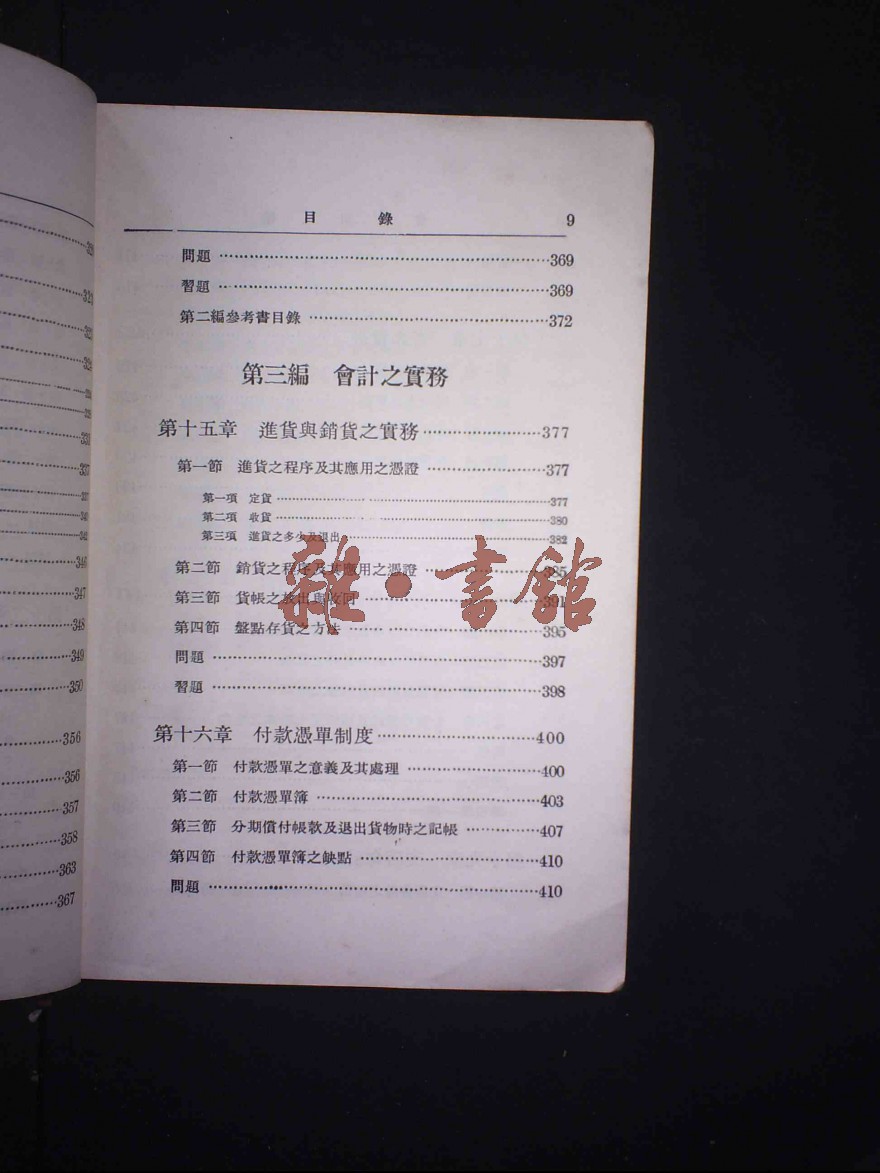 目 錄 9
問題 369
習題 369
第二編參考書目錄 372
第三編 會計之實務
第十五章 進貨與銷貨之實務 377
第一節 進貨之程序及其應用之憑證 377
第一項 定貨 377
第二項 收貨 380
第三項 進貨之多少及退出 382
第二節 銷貨之程序及其應用之憑證 385
第三節 貨帳之放出與收回 391
第四節 盤點存貨之方法 395
問題 397
習題 398
第十六章 付款憑單制度 400
第一節 付款憑單之意義及其處理 400
第二節 付款憑單簿 403
第三節 分期償付帳款及退出貨物時之記帳 407
第四節 付款憑單簿之缺點 410
問題 410
雜·書館
321
337
346
347
348
349
350
356
356
357
358
363
367